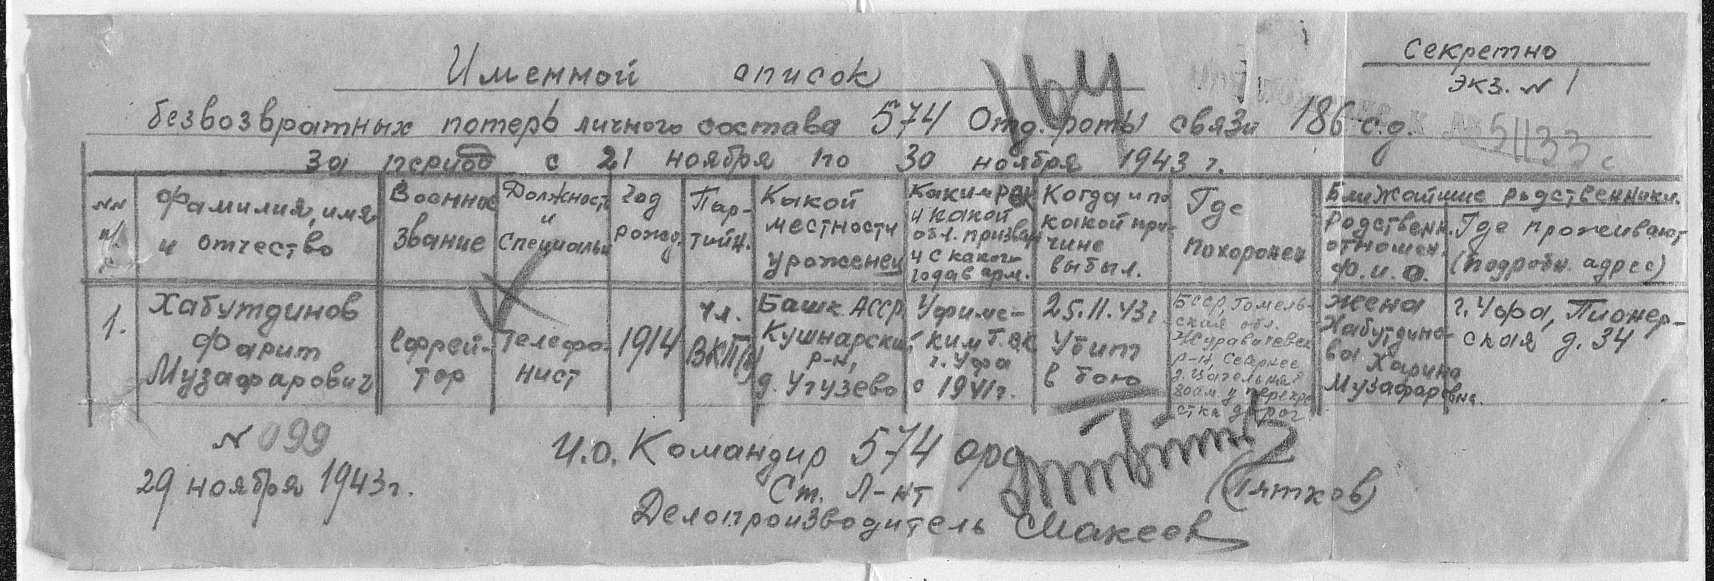 Секретно
экз. № 1
Именной список
164
безвозвратных потерь личного состава 574 Отд. роты связи 186 с.д.
51133 с
за период с 21 ноября по 30 ноября 1943 г.
№№ п/п
Фамилия, имя и отчество
Военное звание
Должность и специальн.
Год рожд.
Пар-
тийн.
Какой местности уроженец
Каким РВК и какой обл. призван и с какого года в арм.
Когда и по какой при-
чине выбыл.
Где похоронен
Ближайшие родственники.
Родственн. отношен. Ф.и.о.
Где проживают (подробн. адрес)
1.
Хабутдинов
Фарит
Музафарович
ефрей-
тор
Телефо-
нист
1914
чл.
ВКП(б)
Башк. АССР,
Кушнарский
р-н,
д. Угузево
Уфимс-
ким ГВК
г. Уфа
с 1941 г.
25.11.43 г.
Убит
в бою
БССР, Гомель-
ская обл.
р-н, Севернее
800 м. у перекре
стка дорог
жена
Хабутдино-
ва Харина
Музафаровна.
г. Уфа, Пионер-
ская д. 34
№ 099
29 ноября 1943 г.
И.о. Командир 574 орс
Ст. Л-нт
(Пятков)
Делопроизводитель Макеев